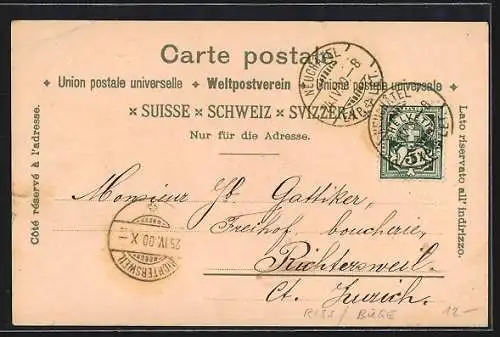 Carte postale.
✦ Union postale universelle ✦ Weltpostverein ✦ Unione postale universale ✦
× SUISSE × SCHWEIZ × SVIZZERA ×
Nur für die Adresse.
Côté réservé à l'adresse.
Lato riservato all' indirizzo.
NEUCHATEL
HELVETIA
5
25.IV.00.X
RICHTERSWEIL
Monsieur Hh Gattiker,
Freihof, boucherie,
Richtersweil.
Ct. Zurich.
RISS / BÜGE
12.-